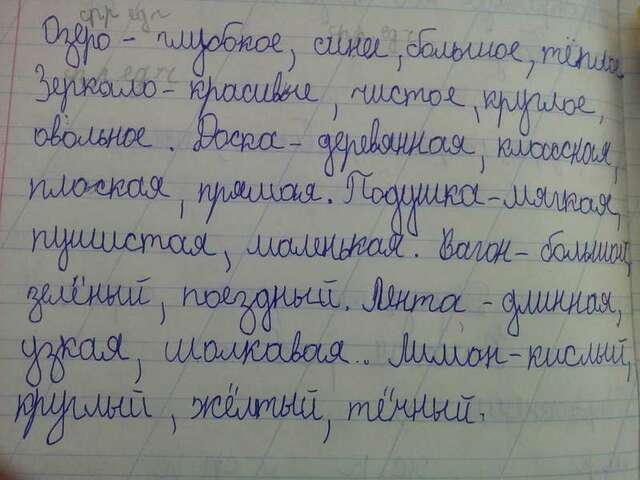 Озеро - глубокое, синее, большое, тёплое
Зеркало - красивые, чистое, круглое,
овольное. Доска - деревянная, классная,
плоская, прямая. Подушка - мягкая,
пушистая, маленькая. Вагон - большой,
зелёный, поездный. Лента - длинная,
узкая, шолкавая.. Лимон - кислый,
круглый, жёлтый, тёмный.